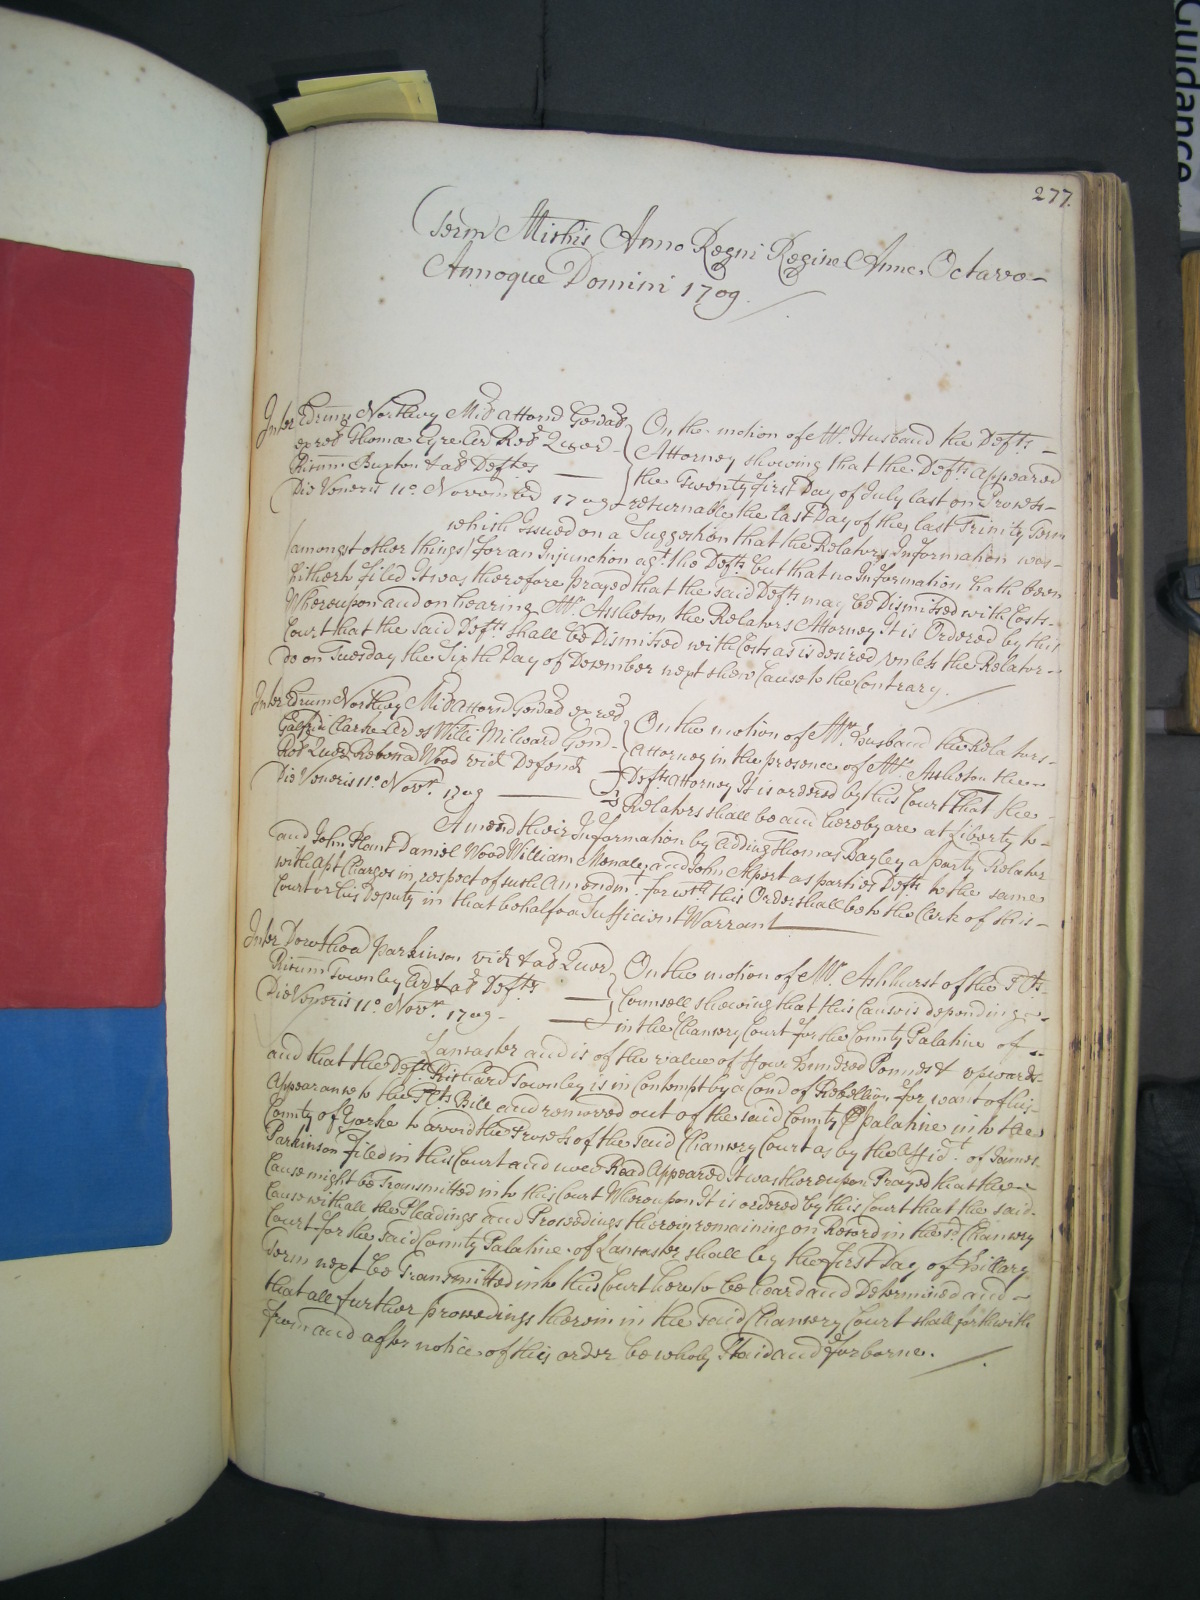 Guidance
277.
Term Michis Anno Regni Regine Anne Octavo
Annoque Domini 1709.
Inter Edrum Northey Mil Attorn Genal
ex rel Thomæ Eyre Ar Rel Quer
Ricum Buxton & al Deftes
Die Veneris 11o. Novembr 1709
On the motion of Mr. Husband the Defts
Attorney shewing that the Defts appeared
the Twenty first Day of July last on Process
returnable the last Day of the last Trinity Term
which Issued on a Suggestion that the Relators Information was
(amongst other things) for an Injunction agt. the Defts but that no Information hath been
hitherto filed It was therefore prayed that the said Defts may be Dismissed with Costs
Whereupon and on hearing Mr. Assheton the Relators Attorney It is Ordered by this
Court that the said Defts shall be Dismissed with Costs as is desired unless the Relator
do on Tuesday the Sixth Day of December next shew Cause to the Contrary.
Inter Edrum Northey Mil Attorn Genal ex rel
Galfridi Clarke Ar et Willi Milward Gen
Rel Quer Rebecca Wood vid Defend
Die Veneris 11o. Novr. 1709
On the motion of Mr. Husband the Relators
Attorney in the presence of Mr. Assheton the
Defts Attorney It is ordered by this Court That the
Relators shall be and hereby are at Liberty to
Amend their Information by adding Thomas Bayley a party Relator
and John Plant Daniel Wood William and John as parties Defts to the same
with apt Charges in respect of such Amendmt. for wch. this Order shall be to the Clerk of this
Court or his Deputy in that behalf a Sufficient Warrant
Inter Dorothea Parkinson vid & al Quer
Ricum Townley Ar & al Defts
Die Veneris 11o. Novr. 1709.
On the motion of Mr. Ashhurst of the Plts
Councell shewing that this Cause is depending
in the Chancery Court for the County Palatine of
Lancaster and is of the value of Four Hundred Pounds & upwards
and that the Deft. Richard Townley is in Contempt by a Com of Rebellion for want of his
Appearance to the Plts Bill and removed out of the said County Palatine into the
County of Yorke to avoid the Process of the said Chancery Court as by the Affidt. of James
Parkinson filed in this Court and now Read Appeared It was thereupon Prayed that the
Cause might be Transmitted into this Court Whereupon It is ordered by this Court that the said
Cause with all the Pleadings and Proceedings therein remaining on Record in the sd Chancery
Court for the said County Palatine of Lancaster shall by the first Day of Hillary
Term next be Transmitted into this Court here to be heard and Determined and
that all further proceedings therein in the said Chancery Court shall forthwith
from and after notice of this order be wholy Staid and forborne.